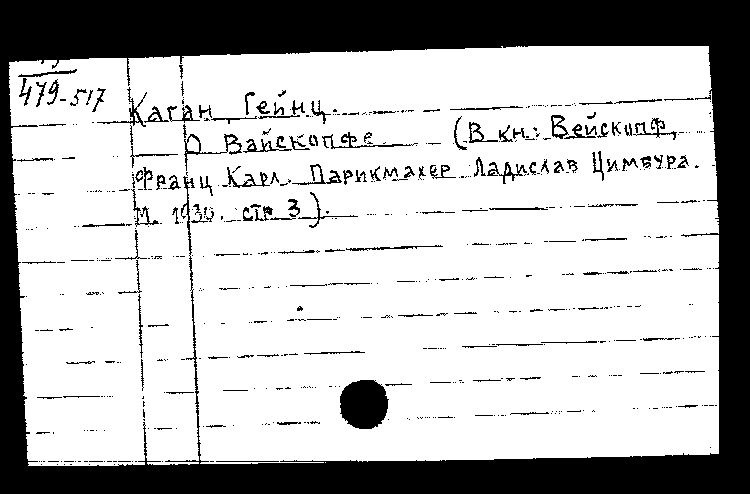 479-517
Каган, Гейнц.
О Вайскопфе. (В кн.: Вейскопф,
Франц Карл. Парикмахер Ладислав Цимвура.
М. 1930. стр 3).